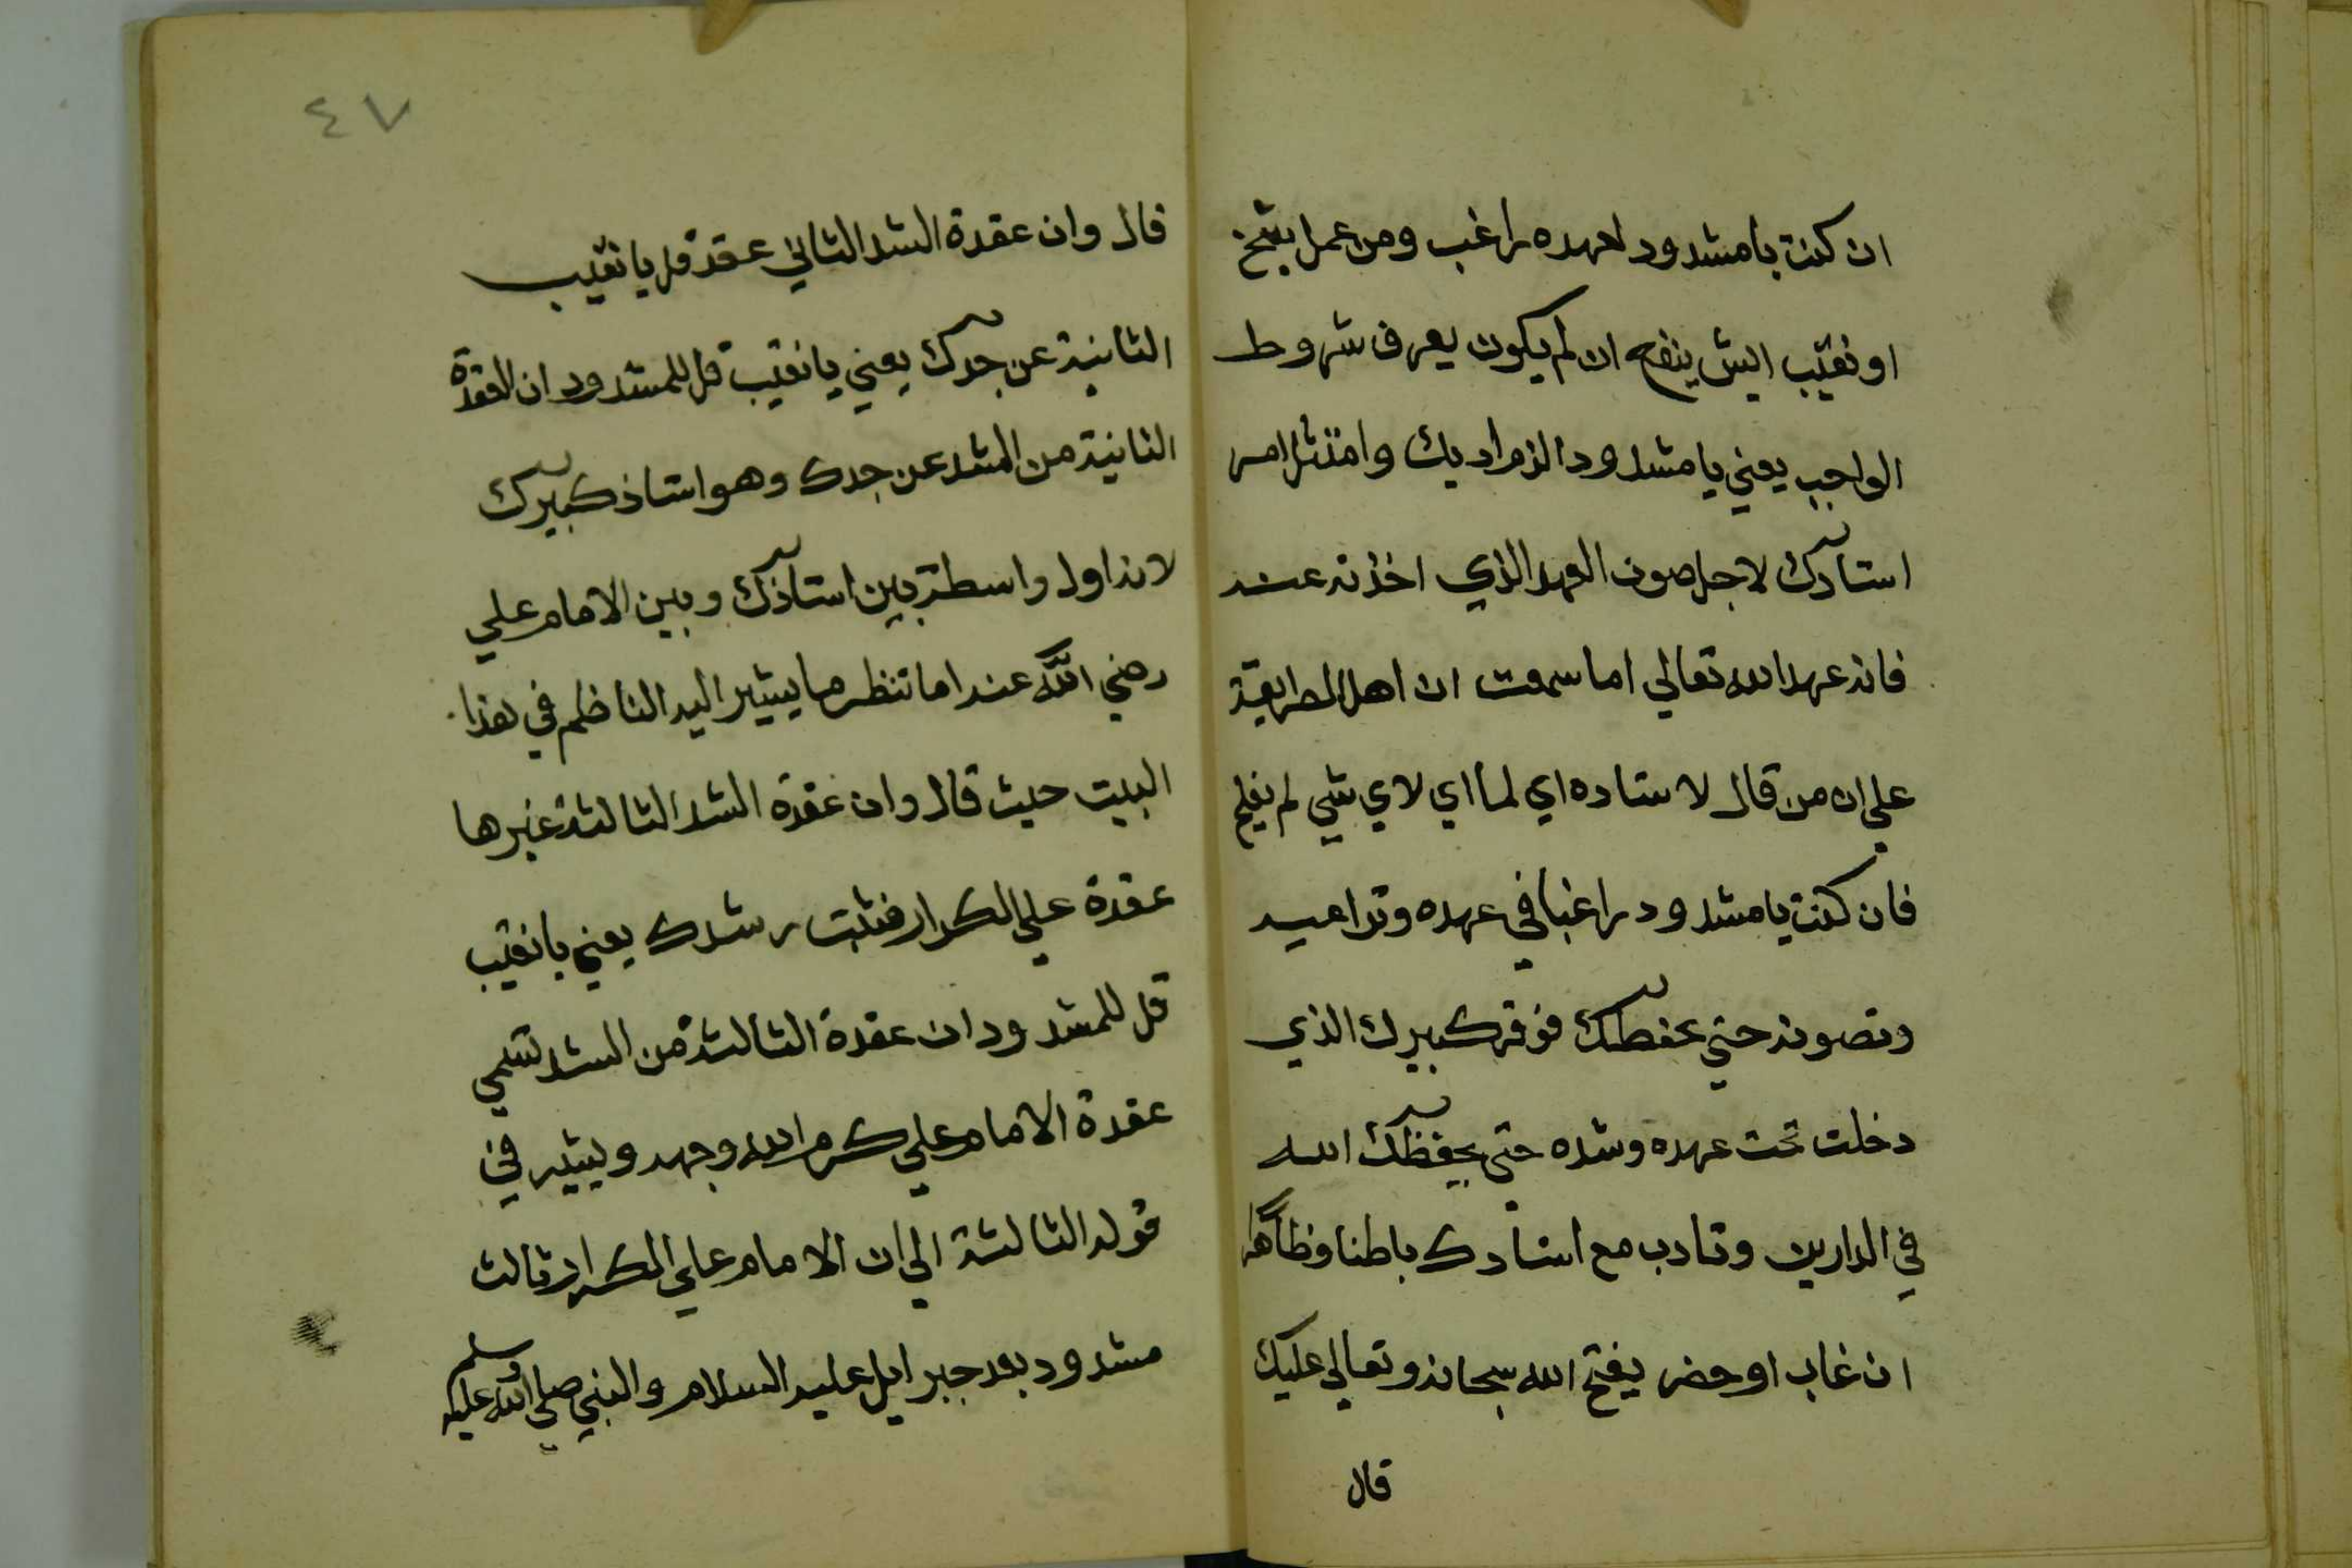 ان كنت يا مشدود لعهده راغب ومن عمل بشيخ
او نقيب ايش ينفع ان لم يكون يعرف شروط
الواجب يعني يا مشدود الزم ادبك وامتثل امر
استادك لاجل صون العهد الذي اخذته عنه
فانه عهد الله تعالي اما سمعت ان اهل الطريقة
علي ان من قال لاستاده اي لما اي لاي شي لم يفلح
فان كنت يا مشدود راغبا في عهده وتراعيه
وتصونه حتي يحفظك فوقر كبيرك الذي
دخلت تحت عهده وشده حتى يحفظك الله
في الدارين وتادب مع استادك باطنا وظاهرا
ان غاب او حضر يفتح الله سبحانه وتعالي عليك
قال
٤٧
قال وان عقدة الشد الثاني عقد قل يا نقيب
الثانية عن جدك يعني يا نقيب قل للمشدود ان العقدة
الثانية من الشد عن جدك وهو استاذ كبيرك
لانه اول واسطة بين استاذك وبين الامام علي
رضي الله عنه اما تنظر ما يشير اليه الناظم في هذا
البيت حيث قال وان عقدة الشد الثالثة غيرها
عقدة علي الكرار فثبت رشدك يعني يا نقيب
قل للمشدود ان عقدة الثالثة من الشد تسمي
عقدة الامام علي كرم الله وجهه ويشير في
قوله الثالثة الي ان الامام علي الكرار ثالث
مشدود بعد جبرايل عليه السلام والنبي صلي الله عليه وسلم